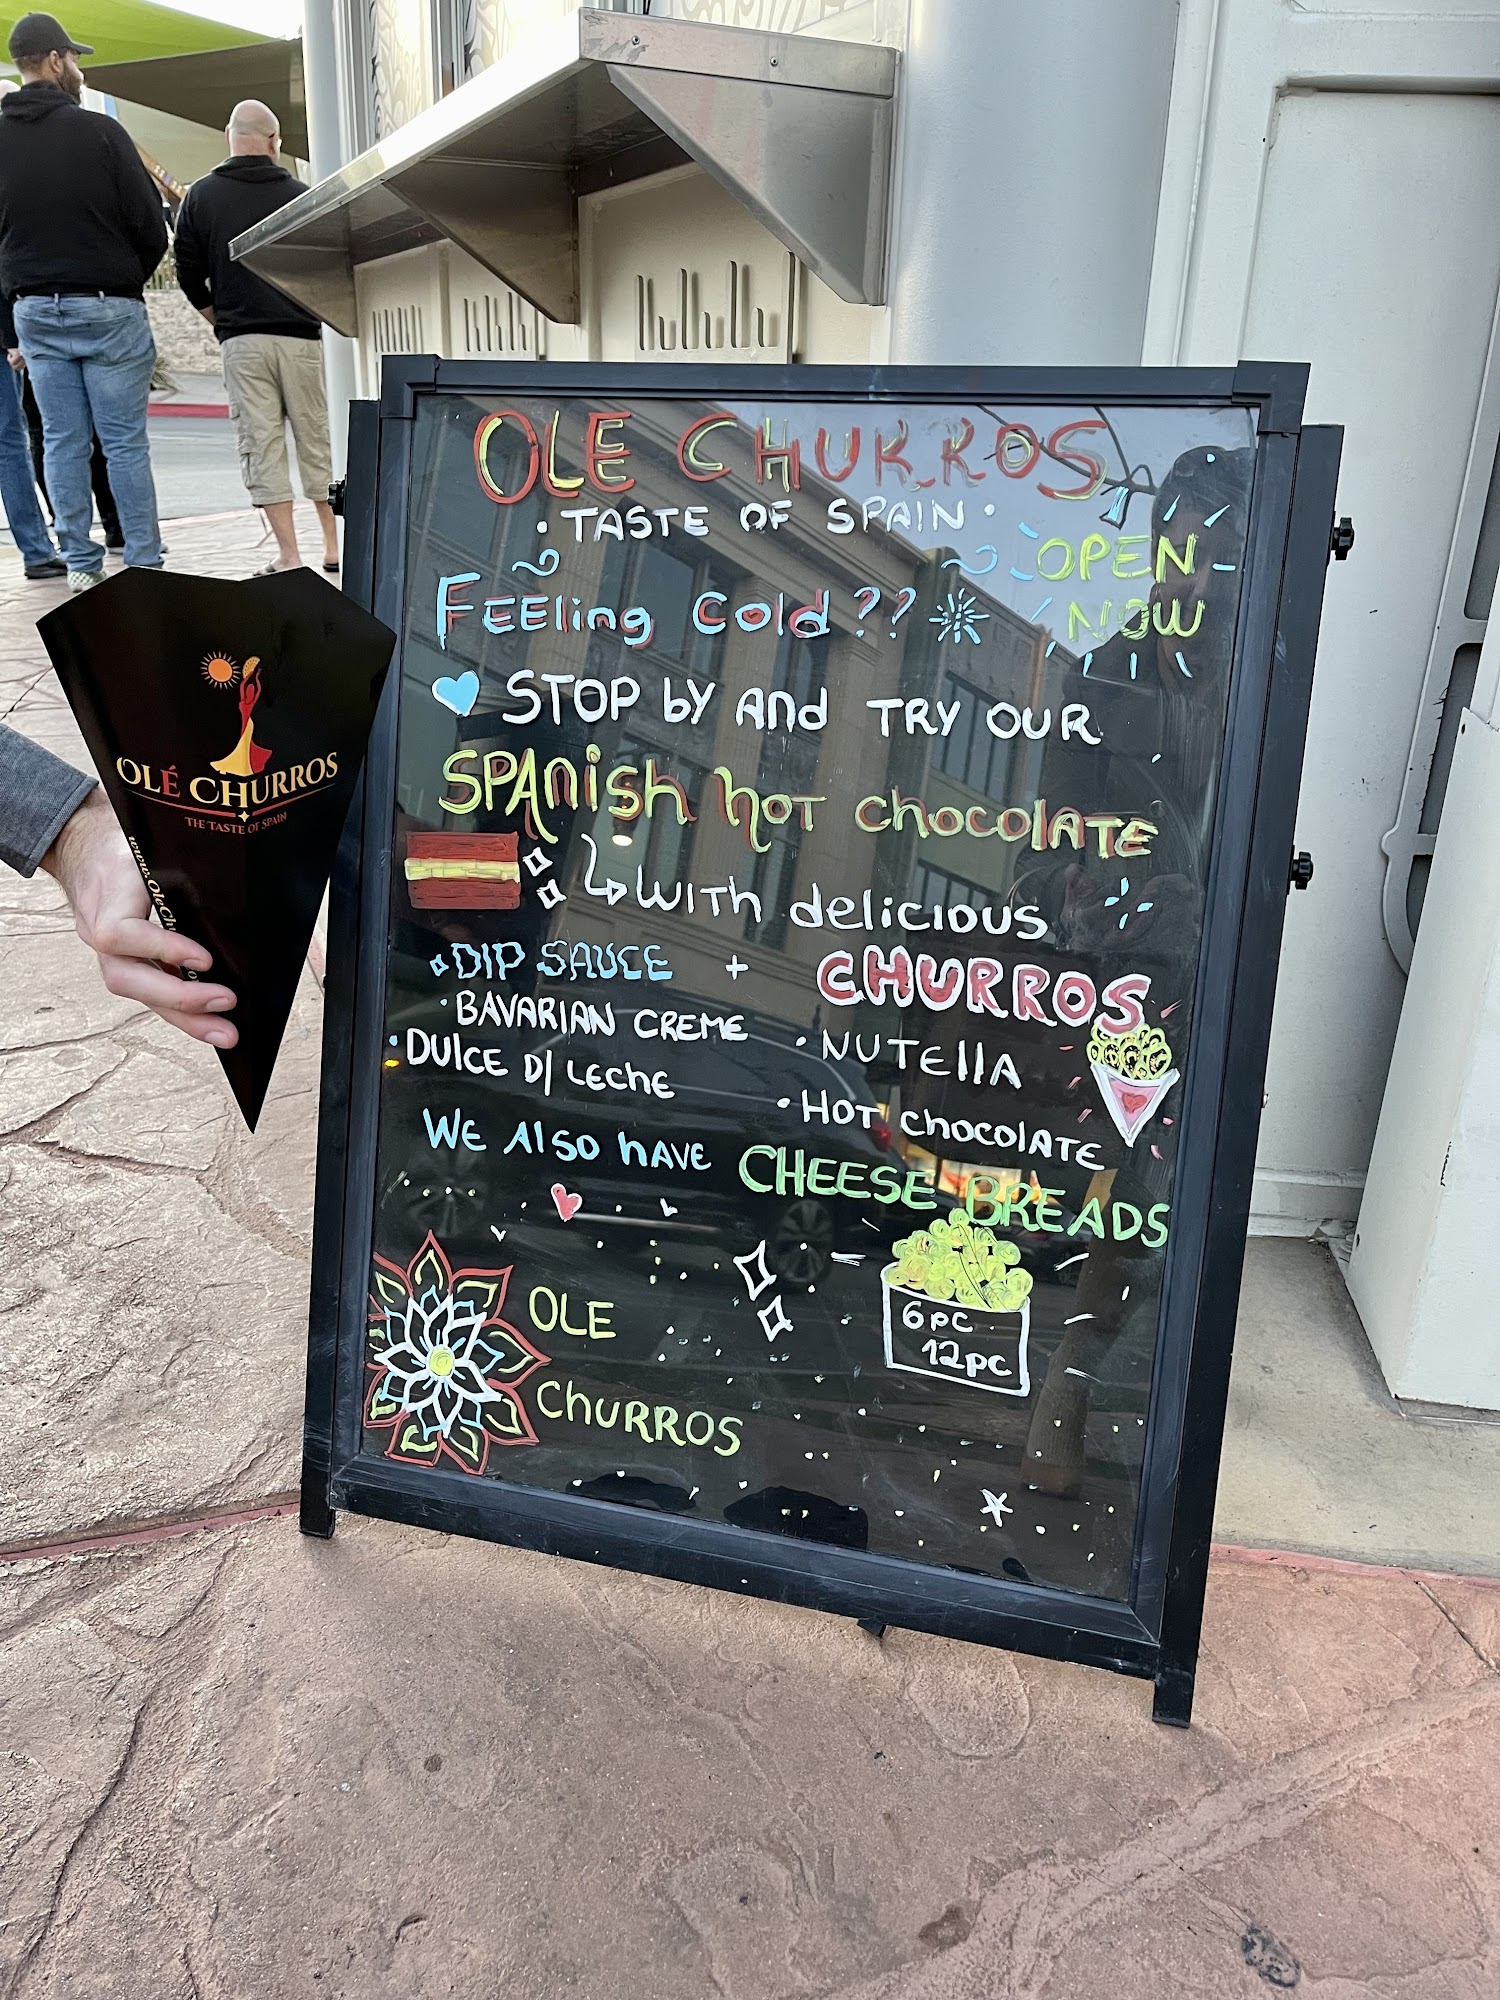 OLE CHURROS
• TASTE OF SPAIN •
OPEN
NOW
FEEling Cold??
STOP by And TRY OUR
SPAnish hOT chocolATE
WITh delicious
DIP SAUCE + CHURROS
• BAVARIAN CREME
• DUlCE D/ LEChE
• NUTEllA
• HOT chocolATE
WE Also hAVE CHEESE BREADS
6pc
12pc
OLE
ChURROS
OLÉ CHURROS
THE TASTE OF SPAIN
www.OleCh